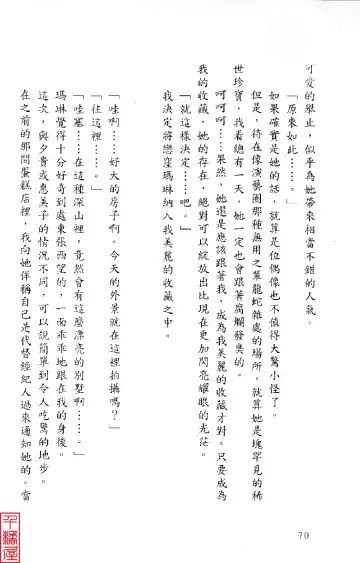 可愛的舉止，似乎為她帶來相當不錯的人氣。
「原來如此……。」
如果確實是她的話，就算是位偶像也不值得大驚小怪了。
但是，待在像演藝圈那種無用之輩龍蛇雜處的場所，就算她是塊罕見的稀
世珍寶，我看總有一天，她一定也會跟著腐爛發臭的。
呵呵呵……果然，她還是應該跟著我，成為我美麗的收藏才對。只要成為
我的收藏，她的存在，絕對可以綻放出比現在更加閃亮耀眼的光茫。
「就這樣決定……吧。」
我決定將戀窪瑪琳納入我美麗的收藏之中。
「哇啊……好大的房子啊。今天的外景就在這裡拍攝嗎？」
「往這裡……。」
「哇塞……這種深山裡，竟然會有這麼漂亮的別墅啊……。」
瑪琳覺得十分好奇到處東張西望的，一面乖乖地跟在我的身後。
這次，與夕貴或惠美子的情況不同，可以說簡單到令人吃驚的地步。
在之前的那間蛋糕店裡，我向她佯稱自己是代替經紀人過來通知她的。當
70
千鷸屋